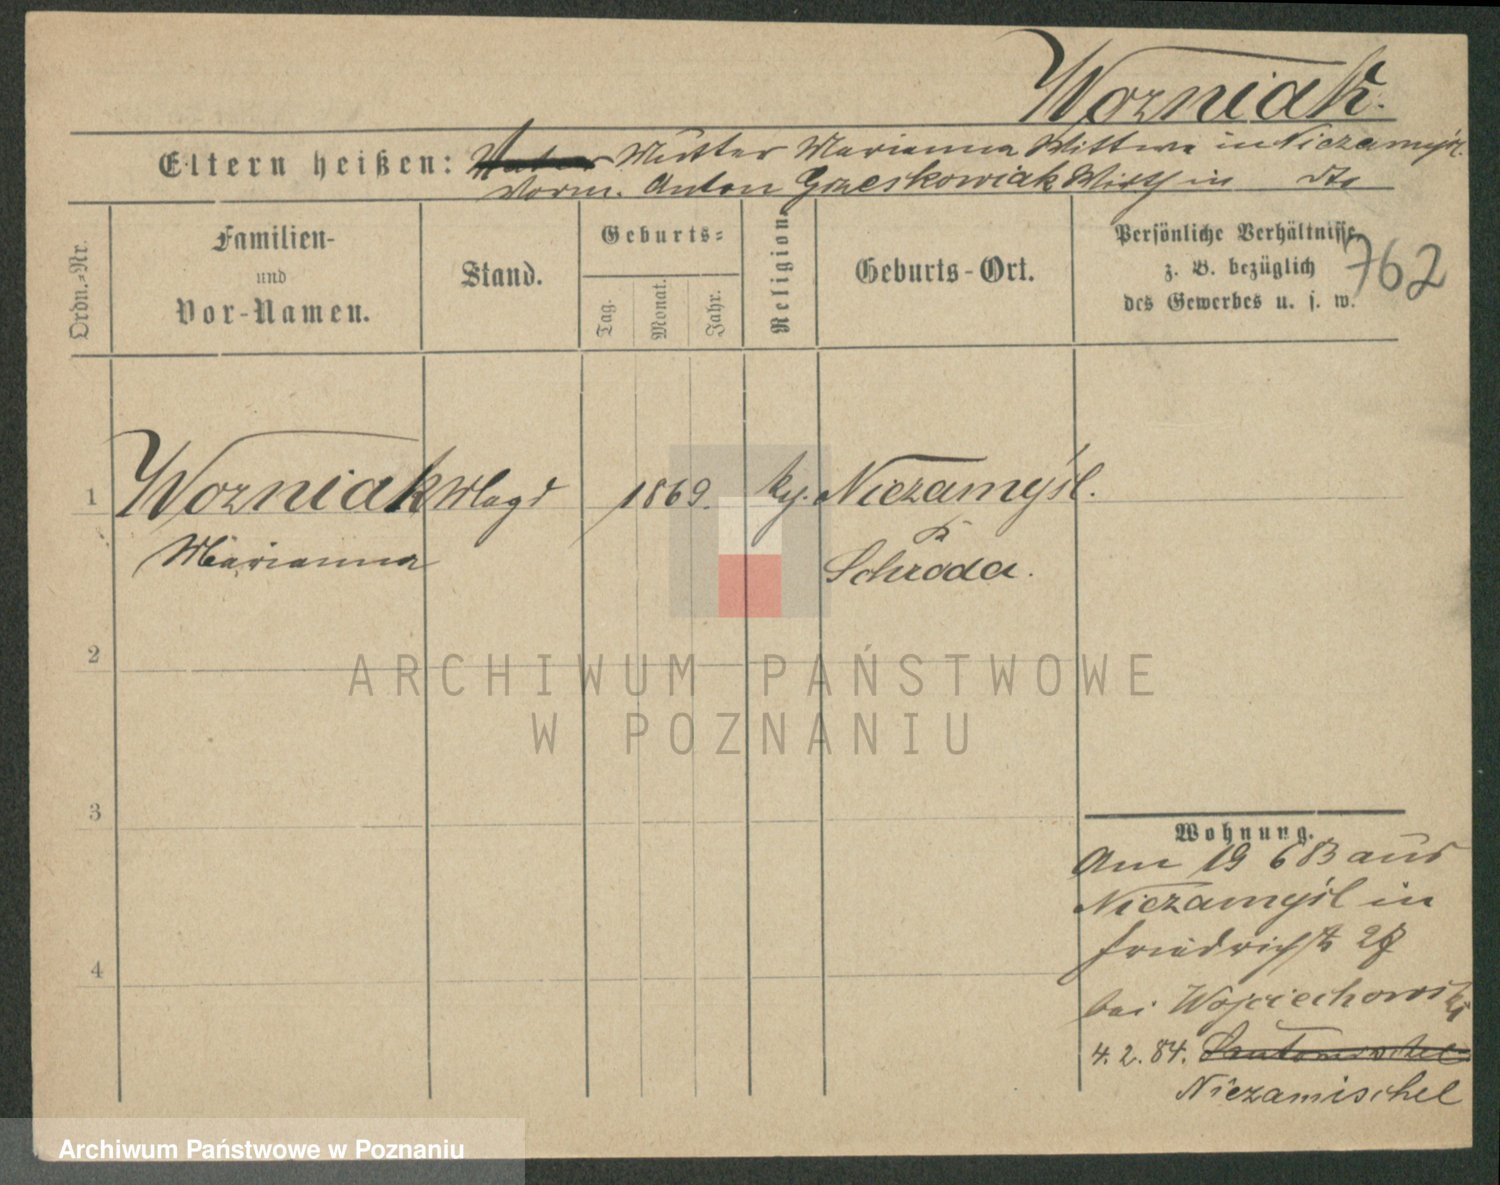 Wozniak.
Eltern heißen: Vater Mutter Marianna Wittwe in Niezamyśl.
Vorm. Anton Grzeskowiak Wirth in dto
Ordn.-Nr.
Familien-
und
Vor-Namen.
Stand.
Geburts-
Tag.
Monat.
Jahr.
Religion.
Geburts-Ort.
Persönliche Verhältnisse
z. B. bezüglich
des Gewerbes u. s. w.
762
1 Wozniak Magd 1869. Niezamyśl.
Marianna
Schroda.
2
ARCHIWUM PAŃSTWOWE
W POZNANIU
3
Wohnung.
Am 19 6 83 aus
Niezamyśl in
Friedrichstr 27
4
bei Wojciechowski
4. 2. 84. Santomischel
Niezamischel
Archiwum Państwowe w Poznaniu